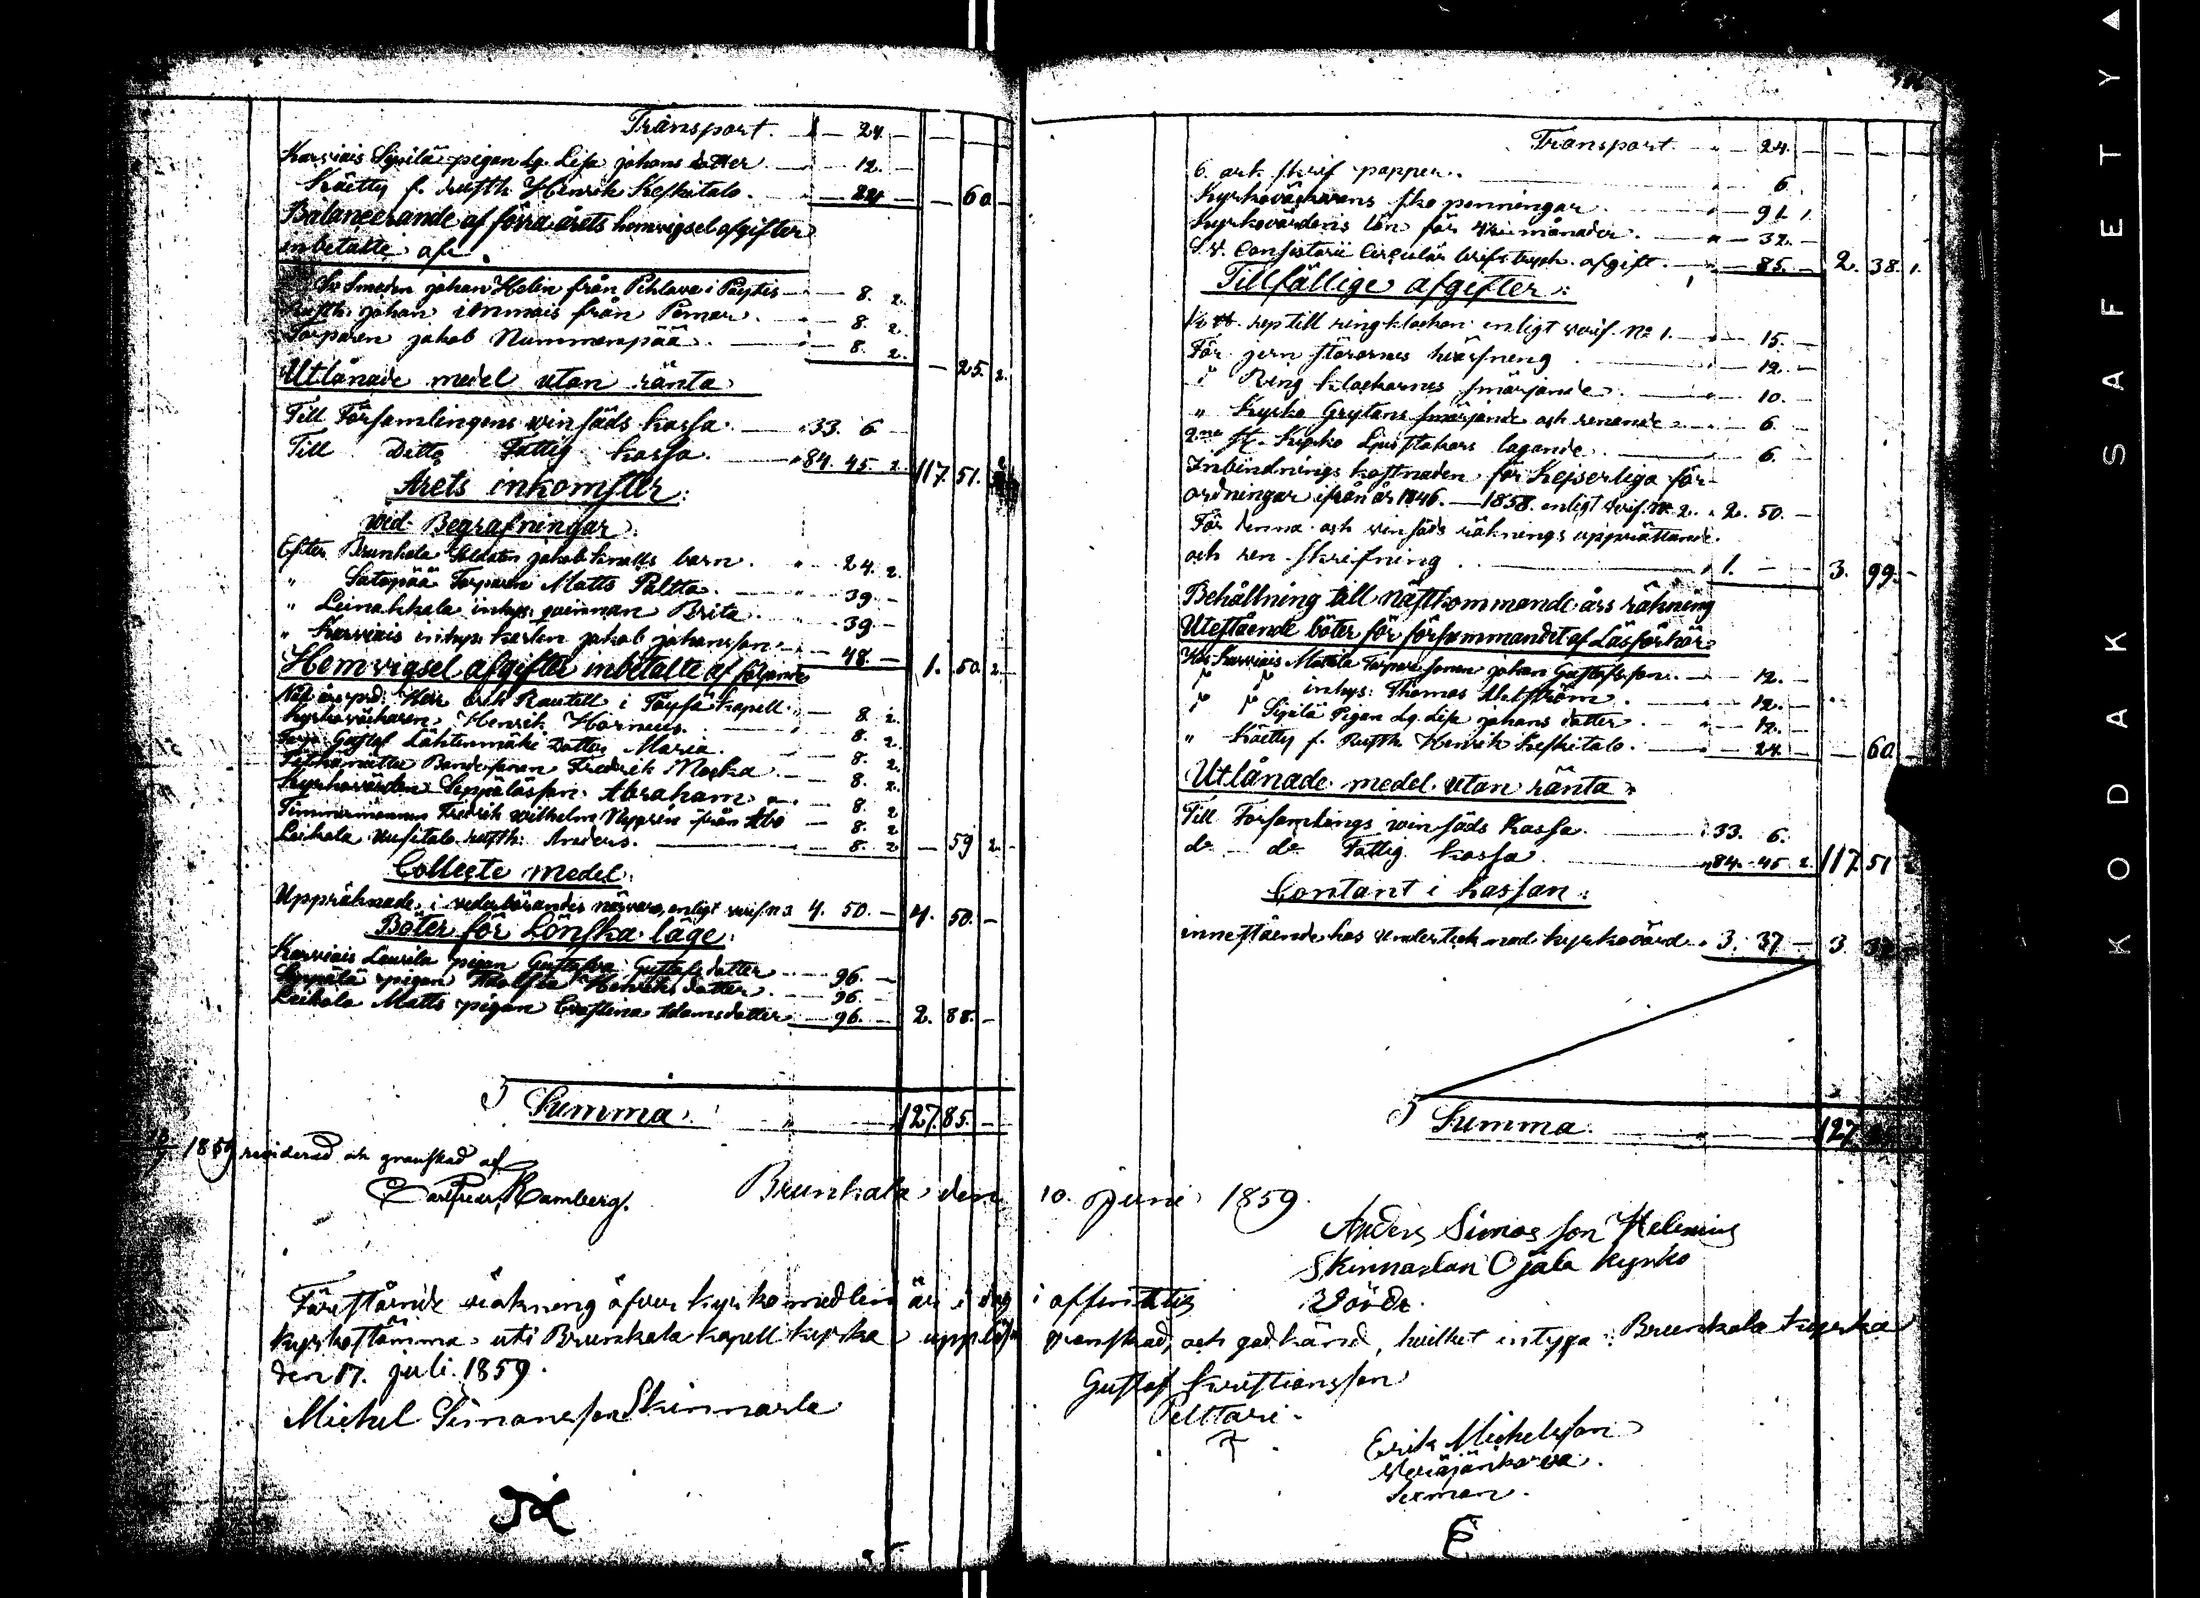 Transport. — 24. —
Karviais Sipilä pigan Lg. Lisa Johans dotter — 12. —
Käetty f. rusth. Henrik Keskitalo. — 24 — — 60 —
Balancerande af förra årets hemvigsel afgifter
inbetalte af:
Smeden Johan Helin från Pihlava i Pöytis — 8. 2.
Rusth. Johan från Pemar. — 8. 2.
Torparen Jakob Nummenpää. — 8. 2. — 25. 2.
Utlånade medel utan ränta
Till Församlingens winsäds kassa. — 33. 6 —
Till Ditto Fattig kassa. — 84. 45. 2. 117. 51. 2
Årets inkomster:
wid Begrafningar:
Efter Brunkala Soldaten Jakob barn. — 24. 2.
" Satopää Torparen Matts Paltta. — 39. —
" Leinakkala inhys. qwinnan Brita — 39 —
" Karviais inhys karlen Jakob Johansson — 48. — 1. 50. 2.
Hemvigsel afgifter inbetalte af följande
Herr Erik Rautell i Töysä kapell. — 8 2.
Kyrkoväktaren, Henrik Hörneus. — 8. 2.
Torp. Gustaf Lähtenmäki Dotter Maria. — 8. 2.
Bondesonen Fredrik Mecka. — 8. 2.
Kyrkovärden Seppälässon Abraham — 8. 2
Timmermannen Fredrik Wilhelm Nygren från Åbo — 8. 2
Leikola Uusitalo rusth: Anders. — 8. 2 — 59 2.
Collecte medel:
Uppräknade i vederbörandes närvaro, enligt verif. n 3 4. 50. — 4. 50. —
Böter för Lönska läge:
Karviais Laurila pigan Gustafva Gustafsdotter — 96. —
Seppälä pigan Adolfva Henriksdotter. — 96. —
Leikola Matts pigan Cristina Adamsdotter — 96. — 2. 88. —
Summa. 127. 85. —
1859 reviderad och granskad af
Carl Fredr. Ramberg.
Brunkala den 10. Juni 1859.
Transport — 24. —
6. ark skrif papper. — 6.
Kyrkoväktarens sko penningar — 91. 1.
Kyrkovärdens lön för månader. — 32. —
Consistorii Circulär brifs tryck. afgift. — 85. — 2. 38. 1.
Tillfällige afgifter:
rep till ringklockan enligt verif. No 1. — 15. —
För jern störarnes — 12. —
" Ring klockornes smörjande — 10. —
" Kyrko Grytans smörjande och renande — 6. —
2ne st. Kyrko Ljusstakars lagande — 6. —
Inbindnings kostnaden för Kejserliga för-
ordningar ifrån år 1846. — 1858. enligt verif. No 2. 2. 50. —
För denna och winsäds räknings upprättande
och ren skrifning 1. — — 3. 99. —
Behållning till nästkommande års räkning
Utestående böter för försummandet af Läsförhör:
Hos Karviais Mattila Torpare sonen Johan Gustafsson. — 12. —
" " inhys: Thomas Ahlström. — 12. —
" " Sipilä Pigan Lg. Lisa Johans dotter — 12. —
" Käetty f. Rusth Henrik Keskitalo. — 24. — — 60.
Utlånade medel utan ränta
Till Församlings winsäds Kassa. 33. 6.
do do Fattig kassa 84. 45 2. 117. 51
Contant i kassan:
innestående hos undertecknad kyrkovärd. 3. 37 — 3. 37
Summa. 127
Anders Simosson Helenius
Skinnarlan Ojala kyrko
Värde.
Förestående räkning öfver kyrko medlen är i dag i offentlig
kyrkostämma uti Brunkala kapell kyrka uppläst granskad, och godkänd, hvilket intyga: Brunkala kyrka
den 17. Juli. 1859.
Michel Simonsson Skinnarla
Gustaf Kristiansson
Pelttari.
Erik Michelsson
Sexman.
KODAK SAFETY